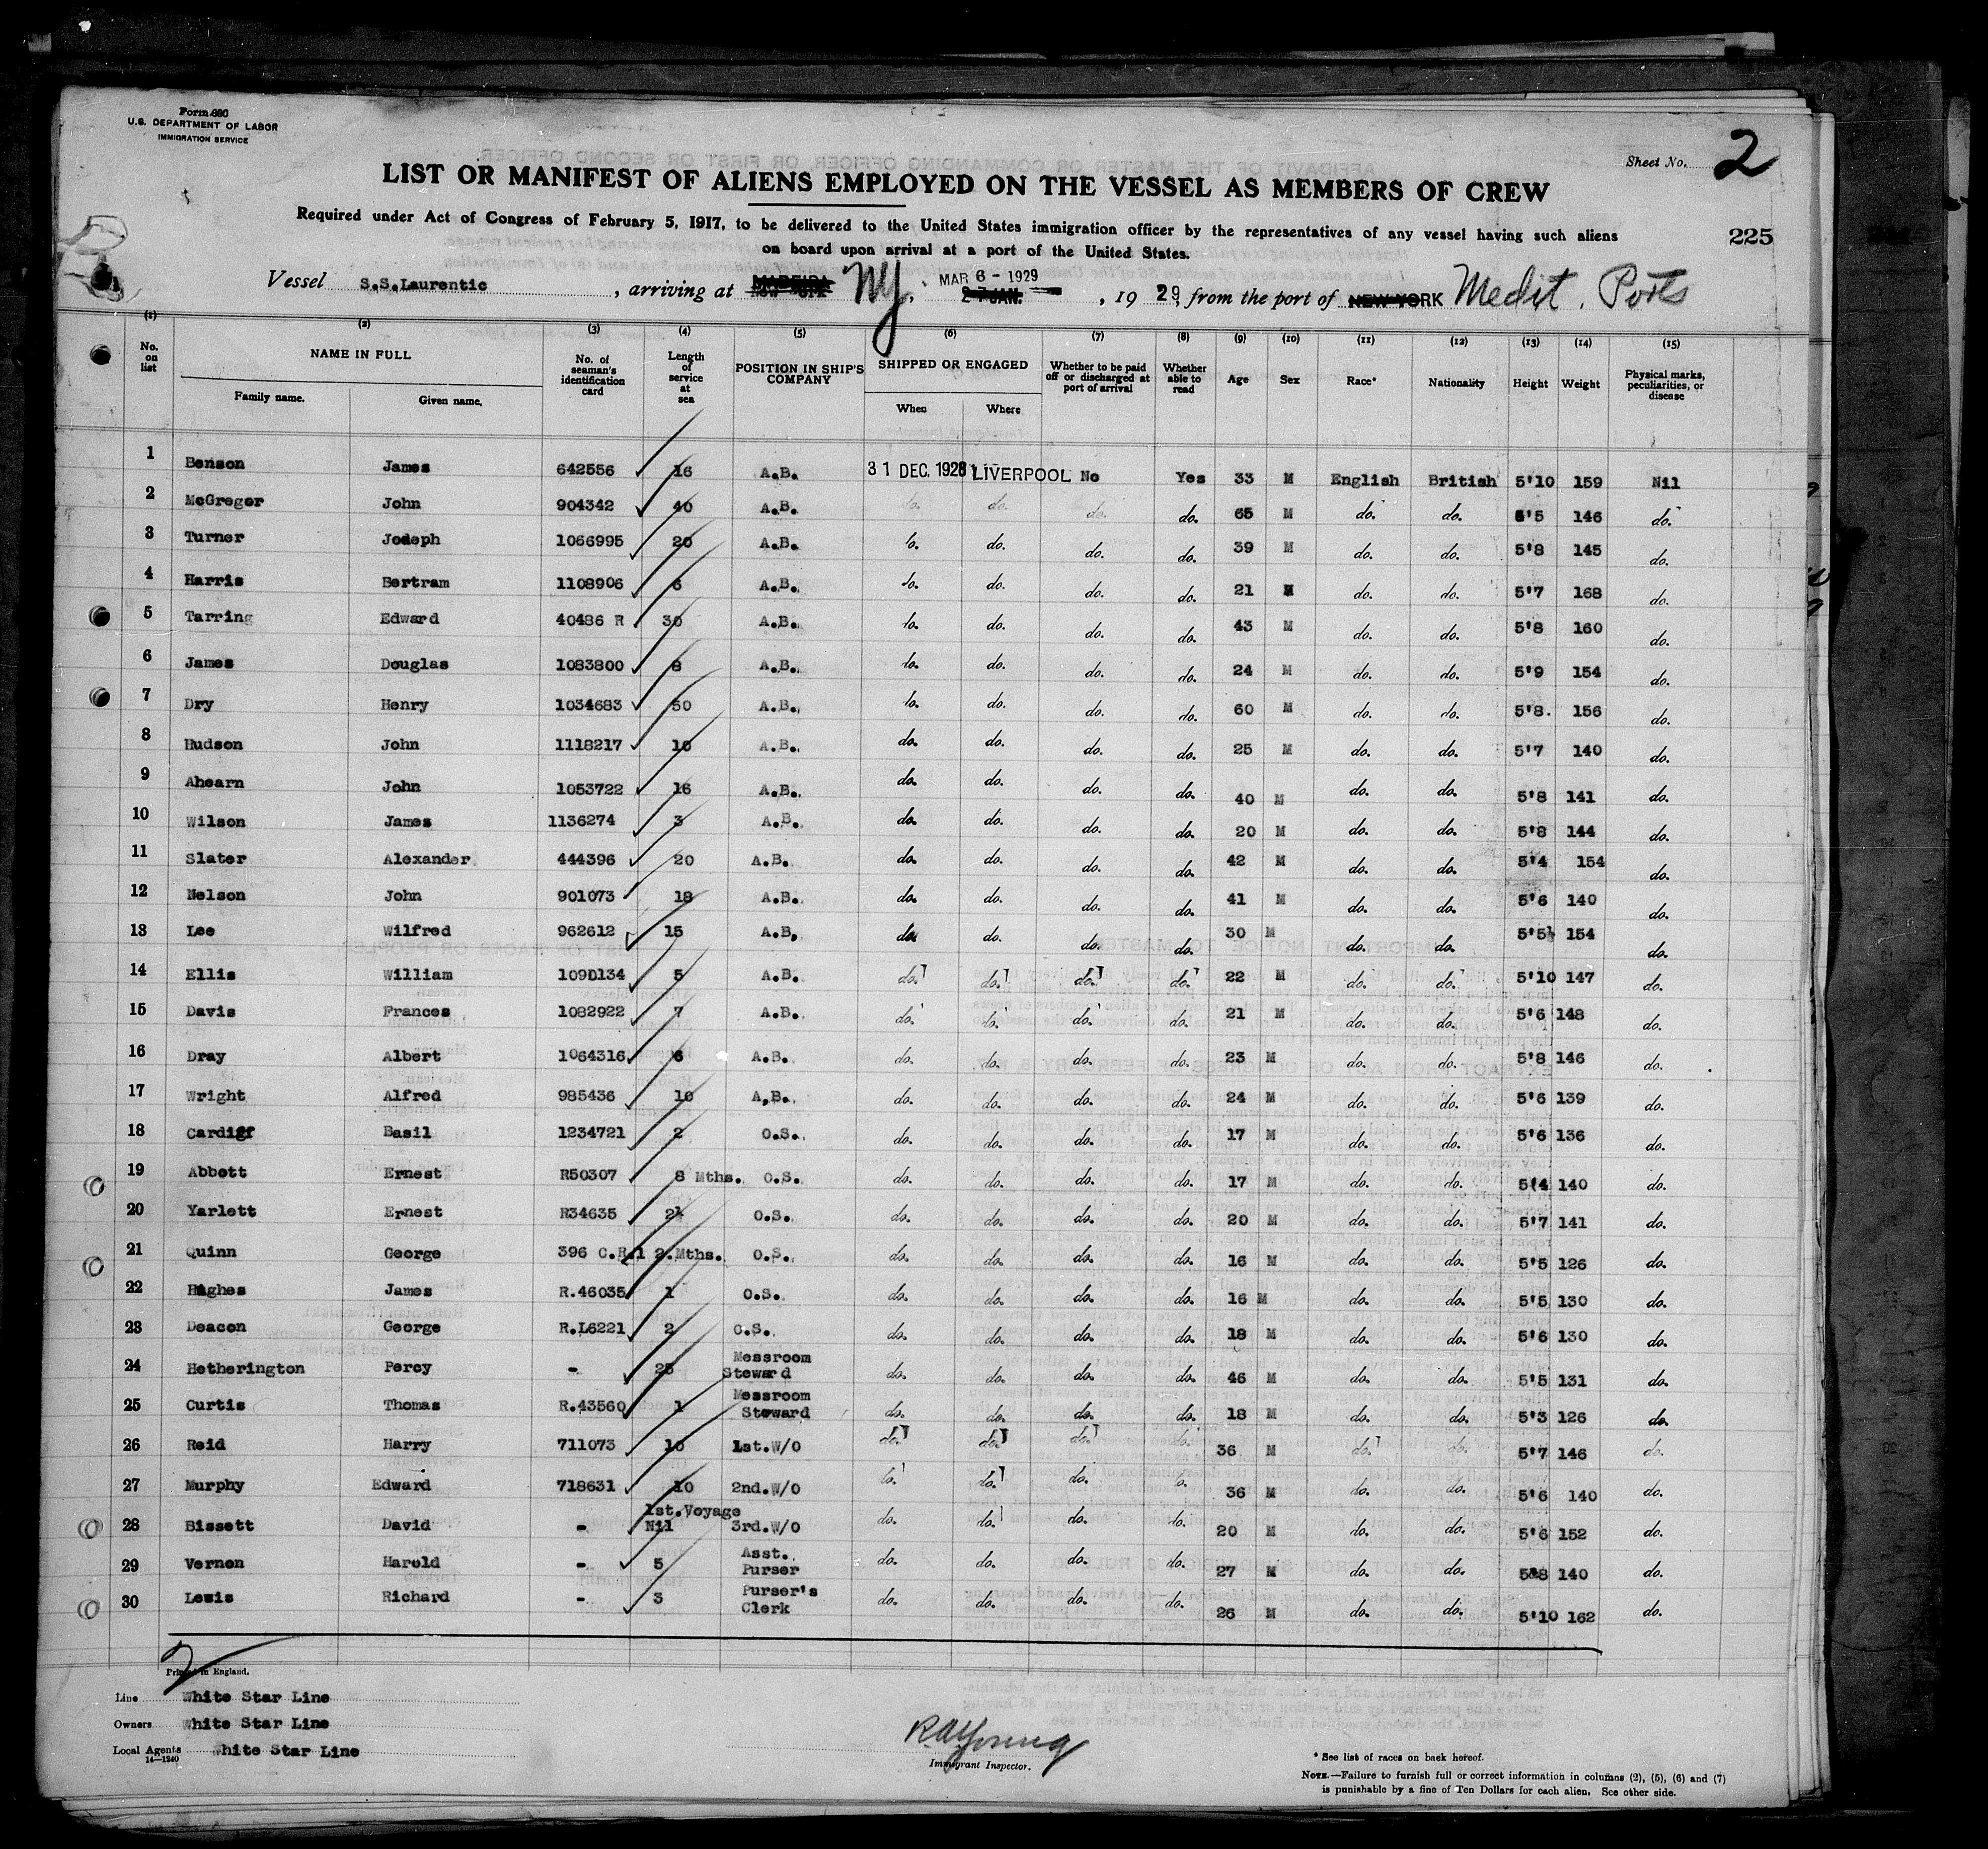 Form 680
U.S. DEPARTMENT OF LABOR
IMMIGRATION SERVICE
Sheet No. 2
LIST OR MANIFEST OF ALIENS EMPLOYED ON THE VESSEL AS MEMBERS OF CREW
Required under Act of Congress of February 5, 1917, to be delivered to the United States immigration officer by the representatives of any vessel having such aliens
on board upon arrival at a port of the United States.
225
Vessel S.S.Laurentic, arriving at MADEIRA NEW YORK NY. MAR 6 - 1929 27 JAN. , 1929, from the port of NEW YORK Medit. Ports
(1) (2) (3) (4) (5) (6) (7) (8) (9) (10) (11) (12) (13) (14) (15)
No. on list NAME IN FULL Family name. Given name. No. of seaman's identification card Length of service at sea POSITION IN SHIP'S COMPANY SHIPPED OR ENGAGED When Where Whether to be paid off or discharged at port of arrival Whether able to read Age Sex Race* Nationality Height Weight Physical marks, peculiarities, or disease
1 Benson James 642556 16 A.B. 31 DEC. 1928 LIVERPOOL No Yes 33 M English British 5'10 159 Nil
2 McGregor John 904342 40 A.B. do. do. do. do. 65 M do. do. 5'5 146 do.
3 Turner Jodeph 1066995 20 A.B. do. do. do. do. 39 M do. do. 5'8 145 do.
4 Harris Bertram 1108906 6 A.B. do. do. do. do. 21 M do. do. 5'7 168 do.
5 Tarring Edward 40486 R 30 A.B. do. do. do. do. 43 M do. do. 5'8 160 do.
6 James Douglas 1083800 8 A.B. do. do. do. do. 24 M do. do. 5'9 154 do.
7 Dry Henry 1034683 50 A.B. do. do. do. do. 60 M do. do. 5'8. 156 do.
8 Hudson John 1118217 10 A.B. do. do. do. do. 25 M do. do. 5'7 140 do.
9 Ahearn John 1053722 16 A.B. do. do. do. do. 40 M do. do. 5'8 141 do.
10 Wilson James 1136274 3 A.B. do. do. do. do. 20 M do. do. 5'8 144 do.
11 Slater Alexander 444396 20 A.B. do. do. do. do. 42 M do. do. 5'4 154 do.
12 Nelson John 901073 18 A.B. do. do. do. do. 41 M do. do. 5'6 140 do.
13 Lee Wilfred 962612 15 A.B. do. do. do. do. 30 M do. do. 5'5½ 154 do.
14 Ellis William 109D134 5 A.B. do. do. do. do. 22 M do. do. 5'10 147 do.
15 Davis Frances 1082922 7 A.B. do. do. do. do. 21 M do. do. 5'6 148 do.
16 Dray Albert 1064316 6 A.B. do. do. do. do. 23 M do. do. 5'8 146 do.
17 Wright Alfred 985436 10 A.B. do. do. do. do. 24 M do. do. 5'6 139 do.
18 Cardiff Basil 1234721 2 O.S. do. do. do. do. 17 M do. do. 5'6 136 do.
19 Abbott Ernest R50307 8 Mths. O.S. do. do. do. do. 17 M do. do. 5'4 140 do.
20 Yarlett Ernest R34635 2½ O.S. do. do. do. do. 20 M do. do. 5'7 141 do.
21 Quinn George 396 C.R.1 2.Mths. O.S. do. do. do. do. 16 M do. do. 5'5 126 do.
22 Hughes James R.46035 1 O.S. do. do. do. do. 16 M do. do. 5'5 130 do.
23 Deacon George R.L6221 2 O.S. do. do. do. do. 18 M do. do. 5'6 130 do.
24 Hetherington Percy - 25 Messroom Steward do. do. do. do. 46 M do. do. 5'5 131 do.
25 Curtis Thomas R.43560 1 Messroom Steward do. do. do. do. 18 M do. do. 5'3 126 do.
26 Reid Harry 711073 10 1st.W/O do. do. do. do. 36 M do. do. 5'7 146 do.
27 Murphy Edward 718631 10 2nd.W/O do. do. do. do. 36 M do. do. 5'6 140 do.
28 Bissett David - 1st.Voyage Nil 3rd.W/O do. do. do. do. 20 M do. do. 5'6 152 do.
29 Vernon Harold - 5 Asst. Purser do. do. do. do. 27 M do. do. 5'8 140 do.
30 Lewis Richard - 3 Purser's Clerk do. do. do. do. 26 M do. do. 5'10 162 do.
2
Printed in England.
Line White Star Line
Owners White Star Line
Local Agents White Star Line
14—1240
R A Young
Immigrant Inspector.
* See list of races on back hereof.
NOTE.—Failure to furnish full or correct information in columns (2), (5), (6) and (7)
is punishable by a fine of Ten Dollars for each alien. See other side.